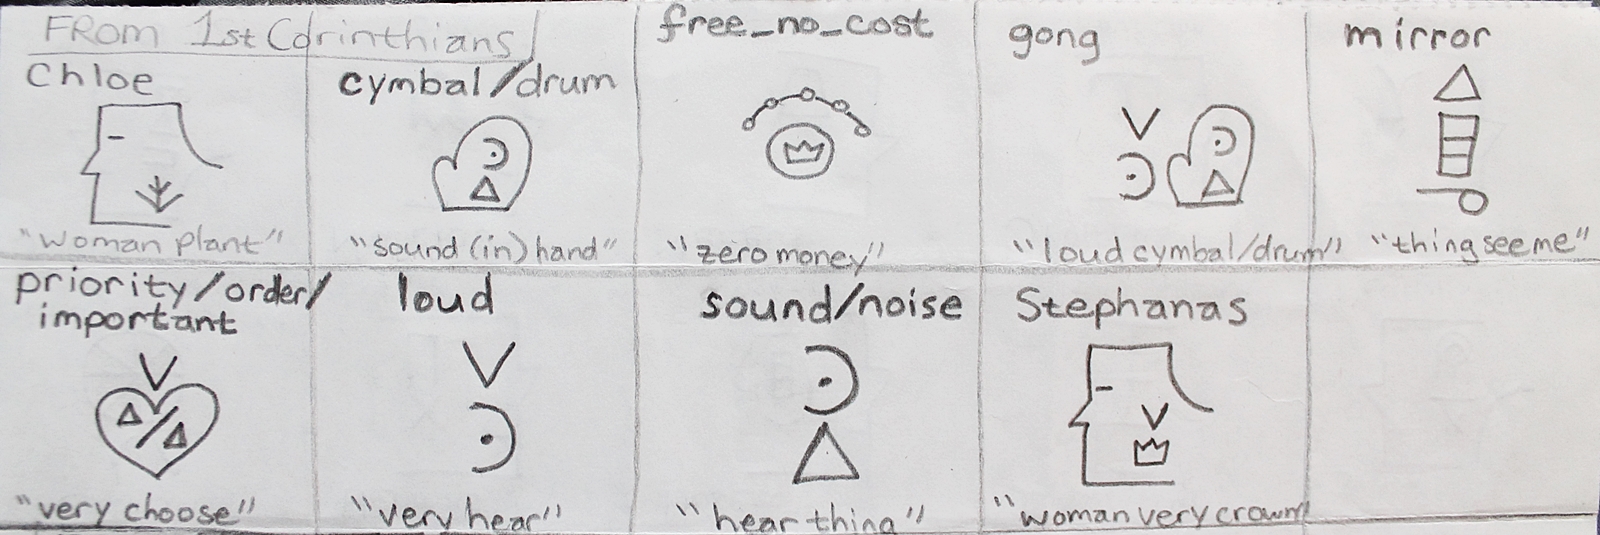 From 1st Corinthians
Chloe
"woman plant"
cymbal/drum
"sound (in) hand"
free_no_cost
"zero money"
gong
"loud cymbal/drum"
mirror
"thing see me"
priority/order/
important
"very choose"
loud
"very hear"
sound/noise
"hear thing"
Stephanas
"woman very crown"